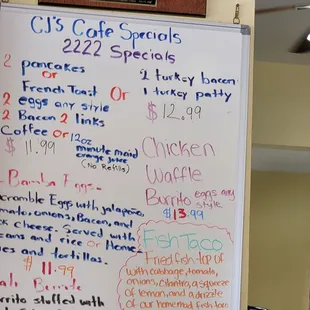 CJ's Cafe Specials
2222 Specials
2 pancakes
or
French Toast Or
2 eggs any style
2 Bacon 2 links
Coffee or 12oz
minute maid
orange juice
(No Refills)
$11.99
2 turkey bacon
1 turkey patty
$12.99
Chicken
Waffle
Burrito eggs any
style
$13.99
Bamba Eggs
cramble Eggs with jalapeño
mato, onions, Bacon, and
ck cheese. Served with
eans and rice or Home
es and tortillas.
$11.99
Burrito
rrito stuffed with
Fish Taco
Fried fish, top of
with cabbage, tomato,
onions, cilantro, a squeeze
of lemon, and a drizzle
of our homemade fish taco